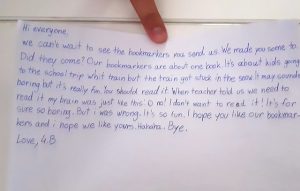 Hi everyone,
we can't wait to see the bookmarkers you send us. We made you some to.
Did they come? Our bookmarkers are about one book. It's about kids going
to the school trip whit train but the train got stuck in the snow. It may sound
boring but it's really fun. You should read it. When teacher told us we need to
read it my brain was just like this: O no! I don't want to read it! It's for
sure so boring. But i was wrong. It's so fun. I hope you like our bookmar-
kers and i hope we like yours. Hahaha. Bye.
Love, 4.B